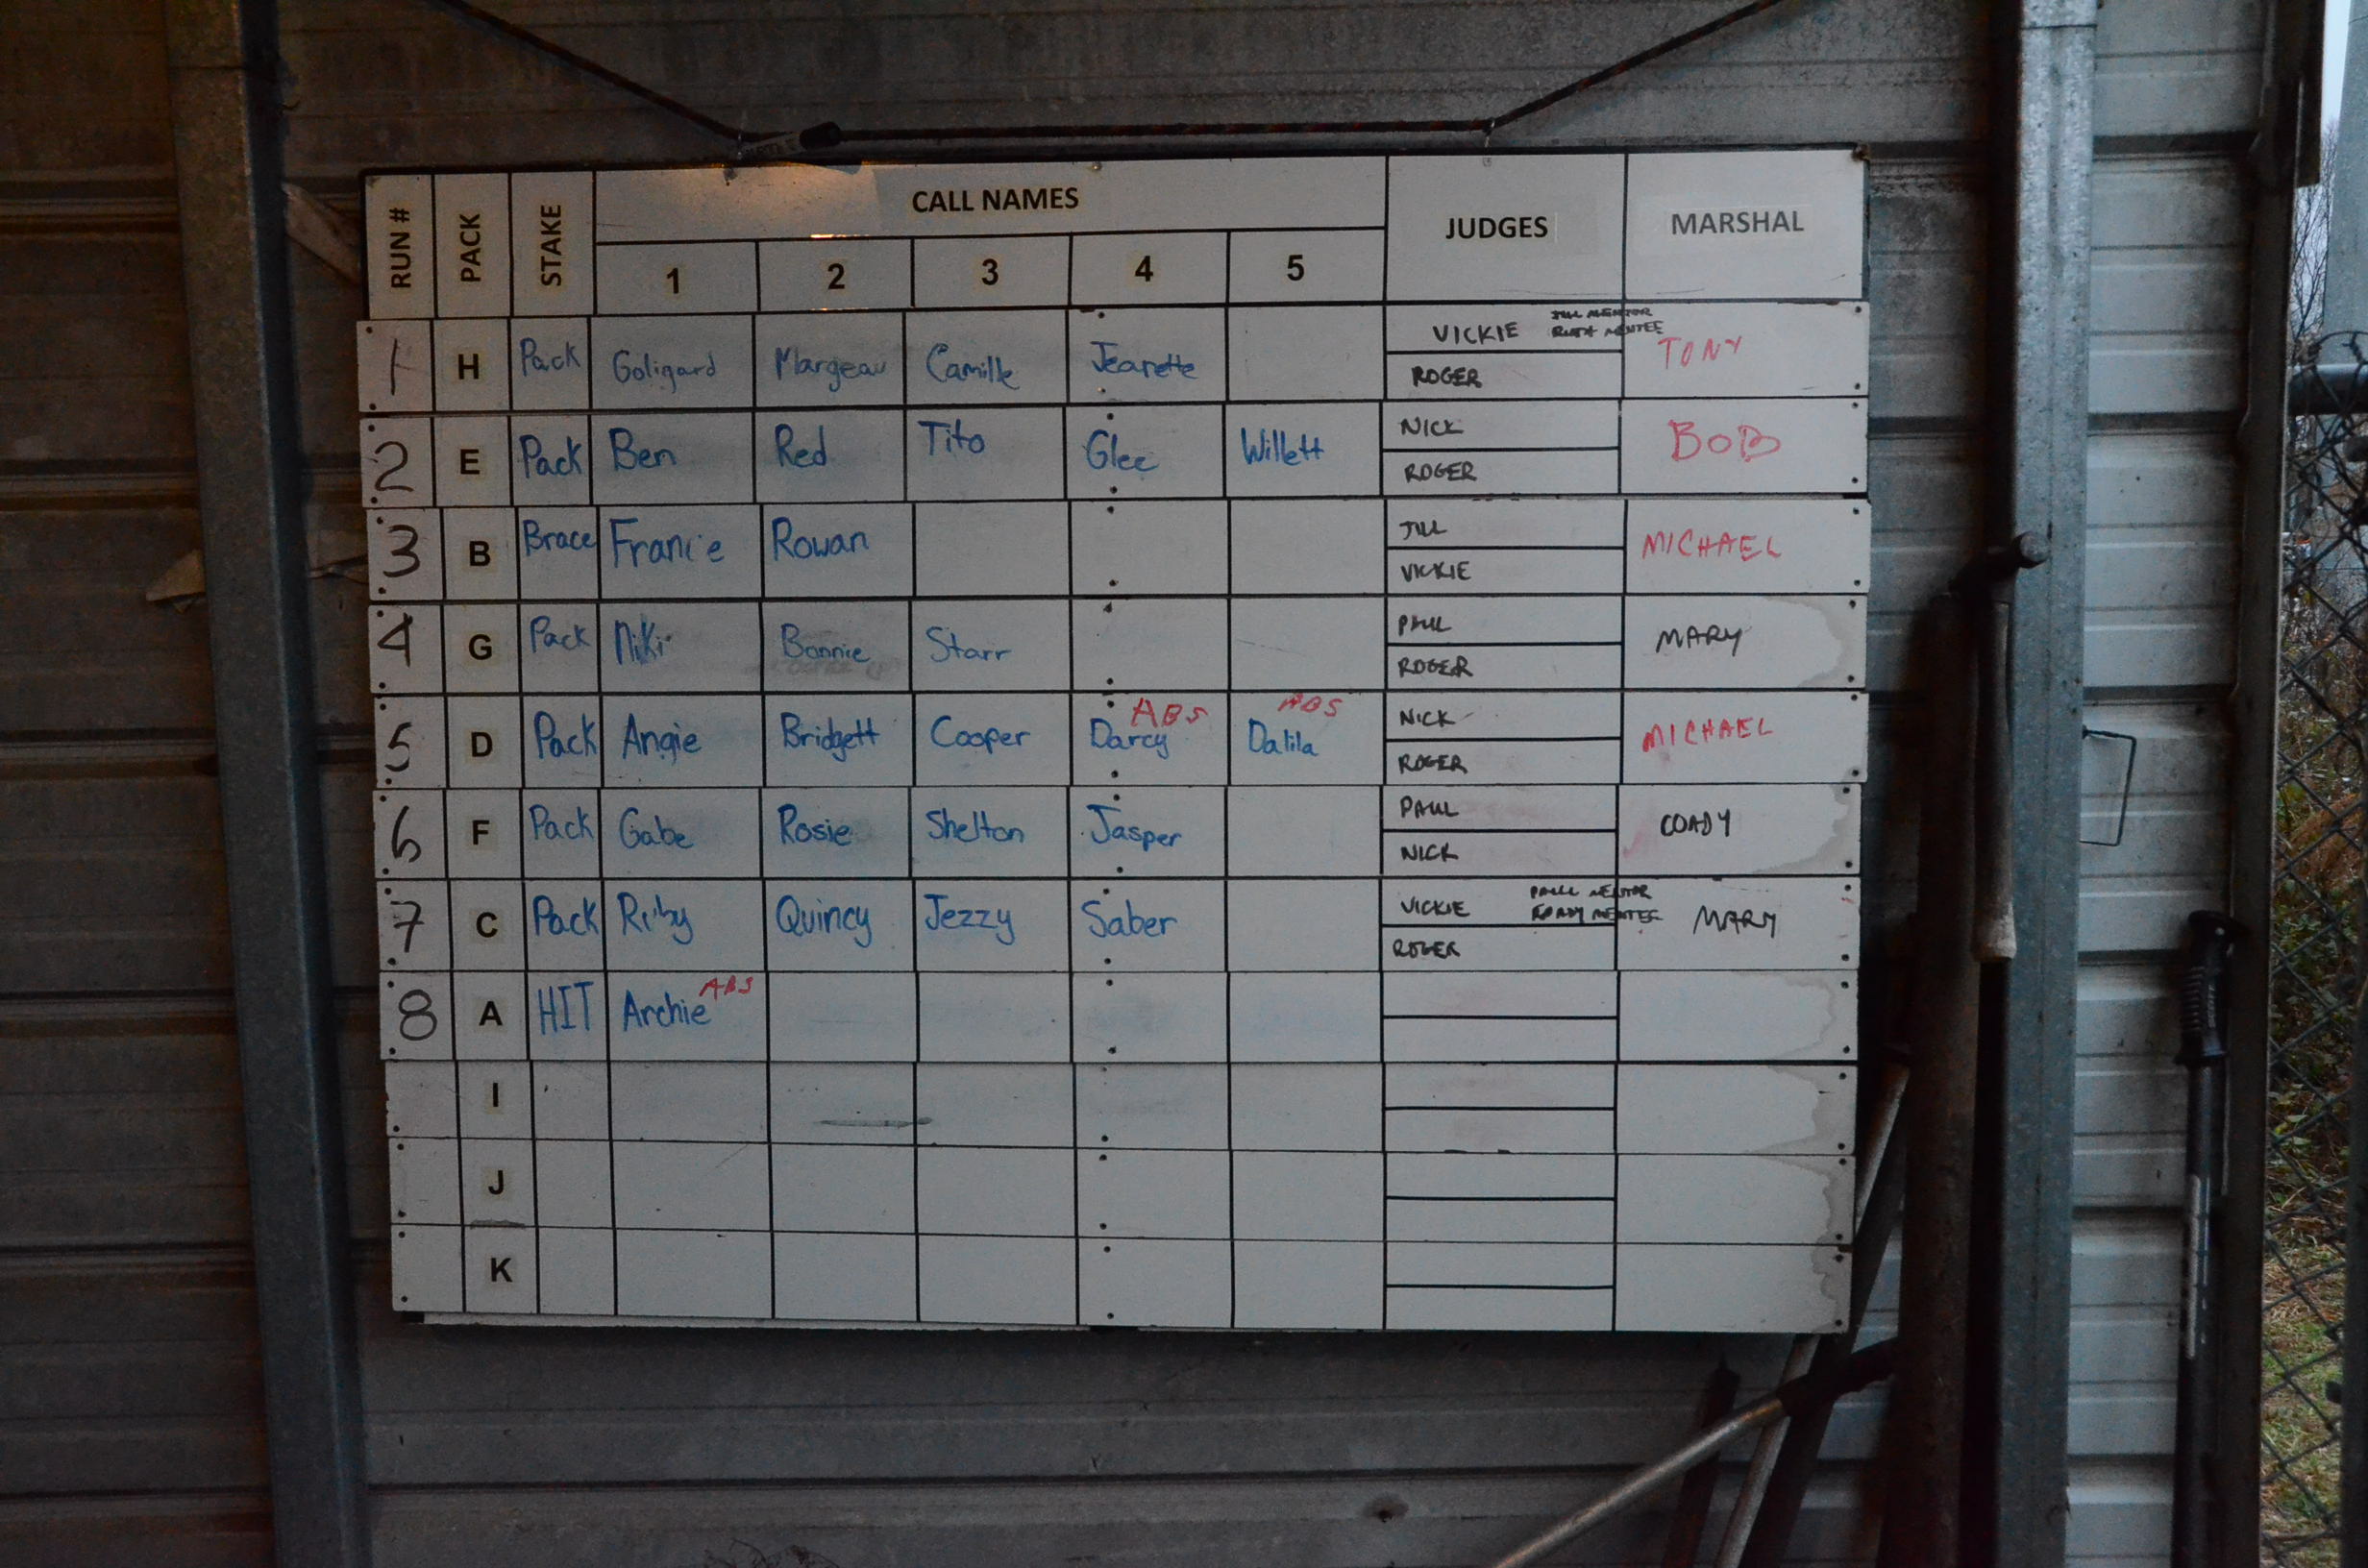 RUN # PACK STAKE CALL NAMES JUDGES MARSHAL
1 2 3 4 5
1 H Pack Goligard Margeau Camille Jeanette VICKIE JILL MENTOR RUTH MENTEE TONY
ROGER
2 E Pack Ben Red Tito Glee Willett NICK BOB
ROGER
3 B Brace Francie Rowan JILL MICHAEL
VICKIE
4 G Pack Niki Bonnie Starr PAUL MARY
ROGER
5 D Pack Angie Bridgett Cooper Darcy ABS Dalila ABS NICK MICHAEL
ROGER
6 F Pack Gabe Rosie Shelton Jasper PAUL COADY
NICK
7 C Pack Riby Quincy Jezzy Saber VICKIE PAUL MENTOR COADY MENTEE MARY
ROGER
8 A HIT Archie ABS
I
J
K